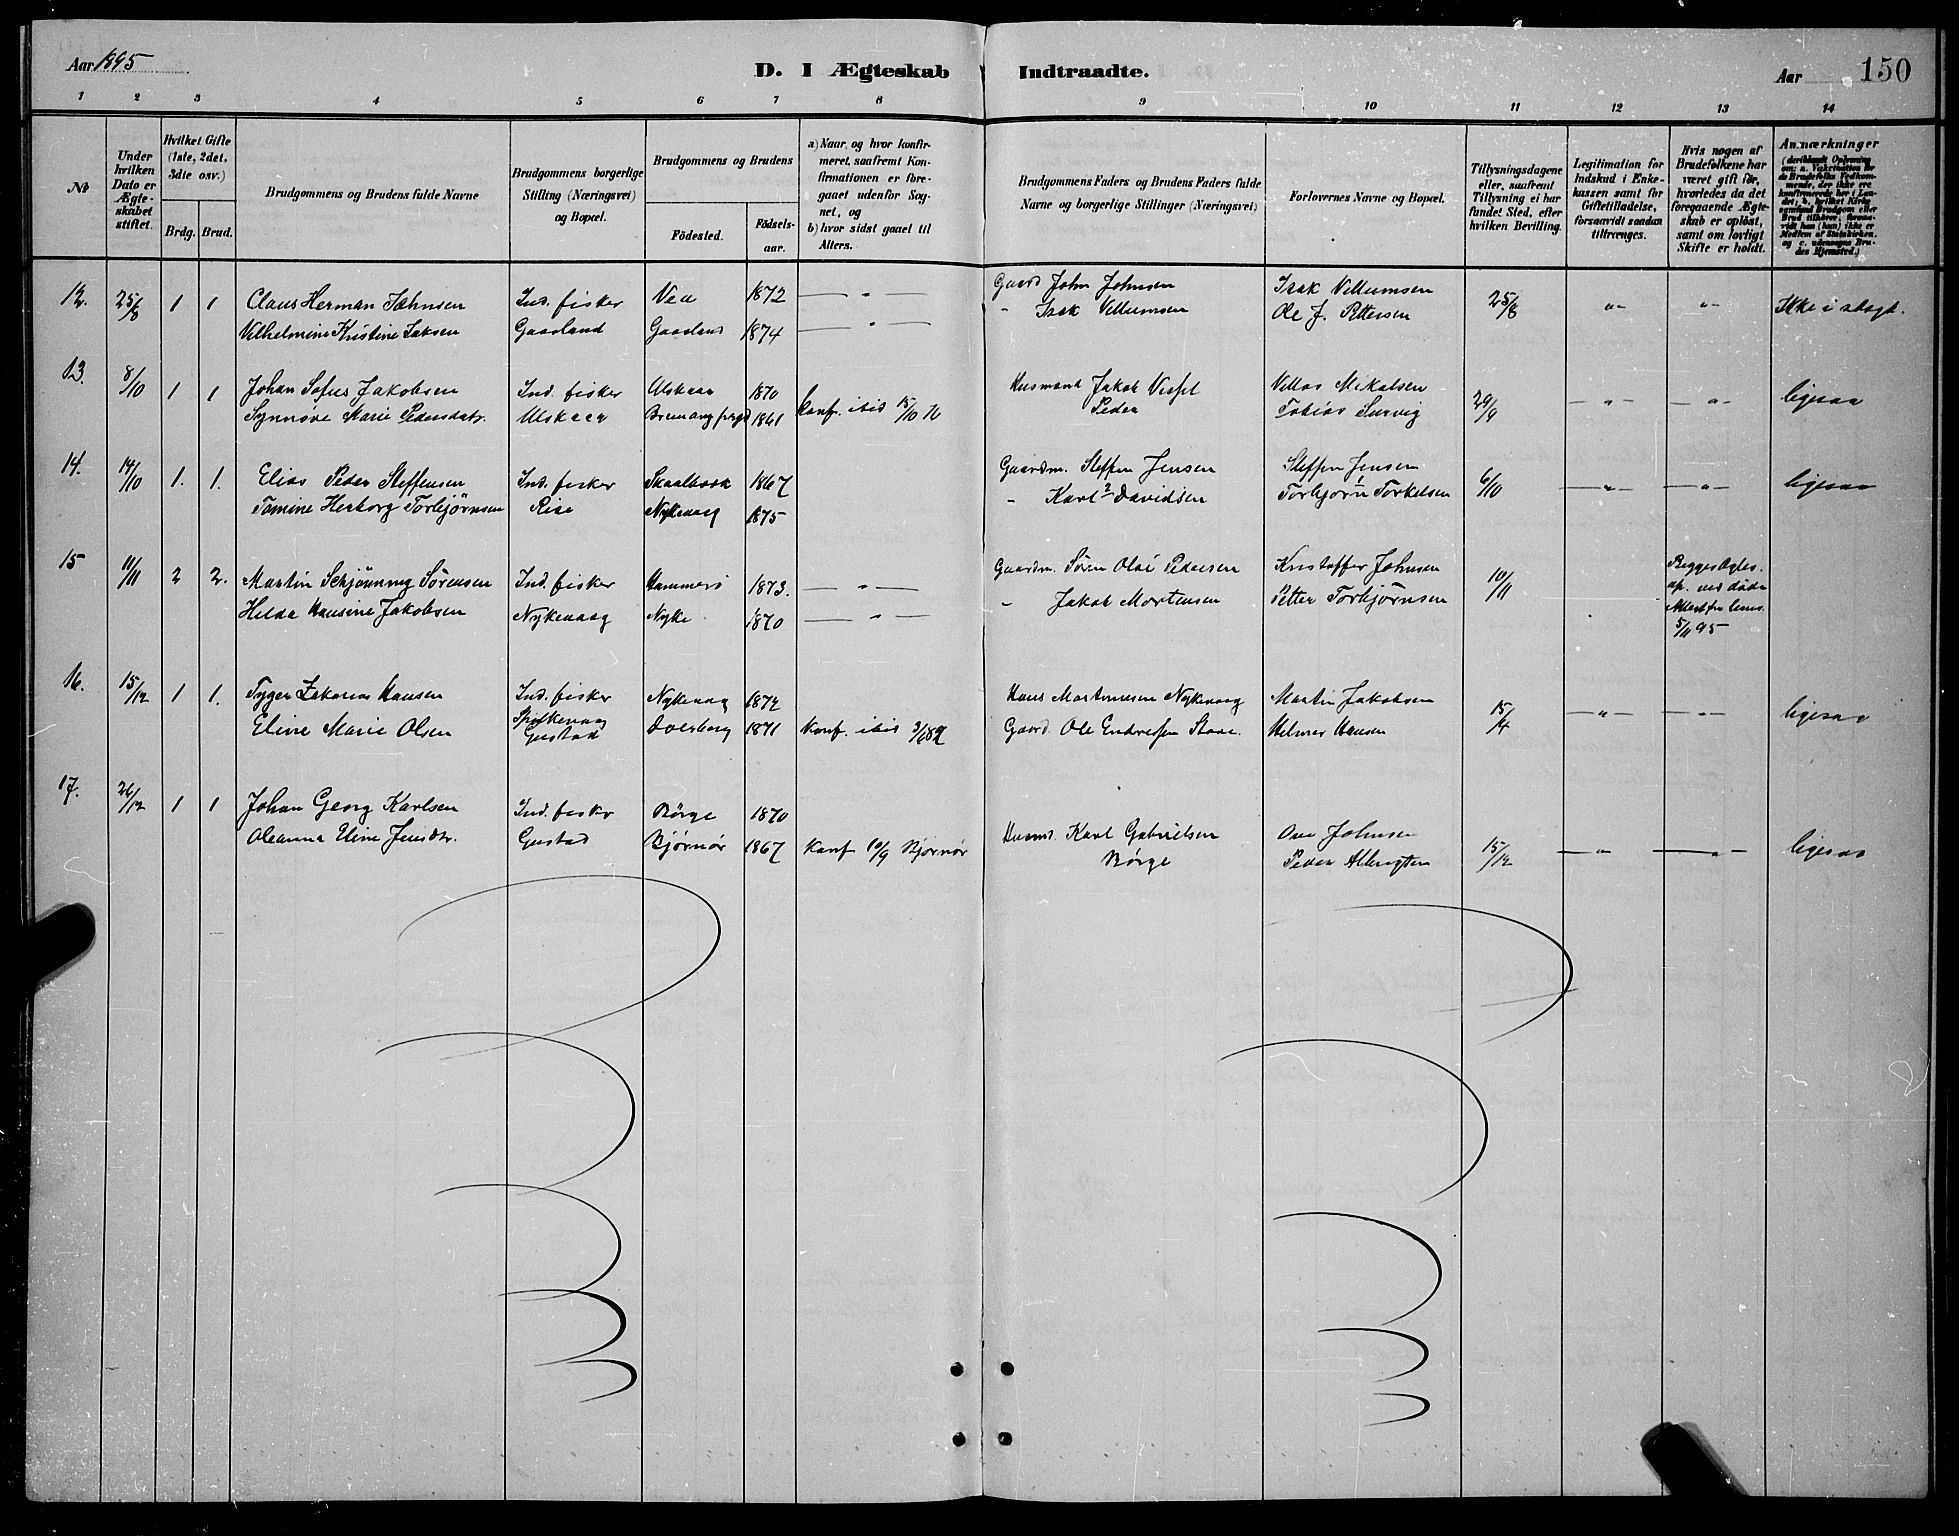 Aar 1895
D. I Ægteskab Indtraadte.
Aar 150
1 2 3 4 5 6 7 8 9 10 11 12 13 14
No
Under hvilken Dato er Ægteskabet stiftet.
Hvilket Gifte (1ste, 2det, 3die osv.)
Brdg. Brud.
Brudgommens og Brudens fulde Navne
Brudgommens borgerlige Stilling (Næringsvei) og Bopæl.
Brudgommens og Brudens
Födested. Födselsaar.
a) Naar, og hvor konfirmeret, saafremt Konfirmationen er foregaaet udenfor Sognet, og
b) hvor sidst gaaet til Alters.
Brudgommens Faders og Brudens Faders fulde Navne og borgerlige Stillinger (Næringsvei)
Forlovernes Navne og Bopæl.
Tillysningsdagene eller, saafremt Tillysning ei har fundet Sted, efter hvilken Bevilling.
Legitimation for Indskud i Enkekassen samt for Giftetilladelse, forsaavidt saadan tiltrænges.
Hvis nogen af Brudefolkene har været gift för, hvorledes da det foregaaende Ægteskab er oplöst, samt om lovligt Skifte er holdt.
Anmærkninger
12. 25/8 1 1 Claus Herman Johnsen Ind. fisker Vea 1872 — " — Gaard John Johnsen Isak Villumsen 25/8 " " Ikke i slægt.
Vilhelmine Kristine Isaksen Gaasland Gaasland 1874 — " — " Isak Villumsen Ole J. Pettersen
13. 8/10 1 1 Johan Sofus Jakobsen Ind. fisker Ulskaar 1870 Husmand Jakob Mikalsen 29/9 — " — — " — ligesaa
Synnøve Marie Pedersdatr. Ulskaar 1861 Konf. ibid 15/10 76 Peder Tobias
14. 14/10 1. 1. Elias Peder Steffensen Ind. fisker 1867 Gaardm. Steffen Jensen Steffen Jensen 6/10 — " — — " — ligesaa
Tomine Herborg Torbjørnsen Rise Nykevaag 1875 " Karl ? Davidsen Torbjørn Torkelsen
15 11/11 2 2. Martin Schjønning Sørensen Ind. fisker Hammerö 1873. — " — Gaardm. Søren Olai Pedersen Kristoffer Johnsen 10/11
Hilda Hansine Jakobsen Nykevaag Nyke 1870 — " — " Jakob Mortensen Petter Torbjørnsen
5/11 95
16. 15/12 1 1. Tyger Zakarias Hansen Ind. fisker Nykevaag 1872 Hans Martinusen Nykevaag Martin Jakobsen 15/ — " — — " — ligesaa
Eline Marie Olsen Gustad 1871 Konf. ibid Gaard. Ole Endresen Stave. Helmer Hansen
17. 26/12 1 1 Johan Georg Karlsen Ind. fisker Børge 1870 Husmd. Karl Gabrielsen Ove Johnsen 15/12 — " — — " — ligesaa
Oleanna Eline Jensdtr. Gustad Bjørnør 1867 Konf 10/9 Bjørnør Børge Peder Albrigtsen